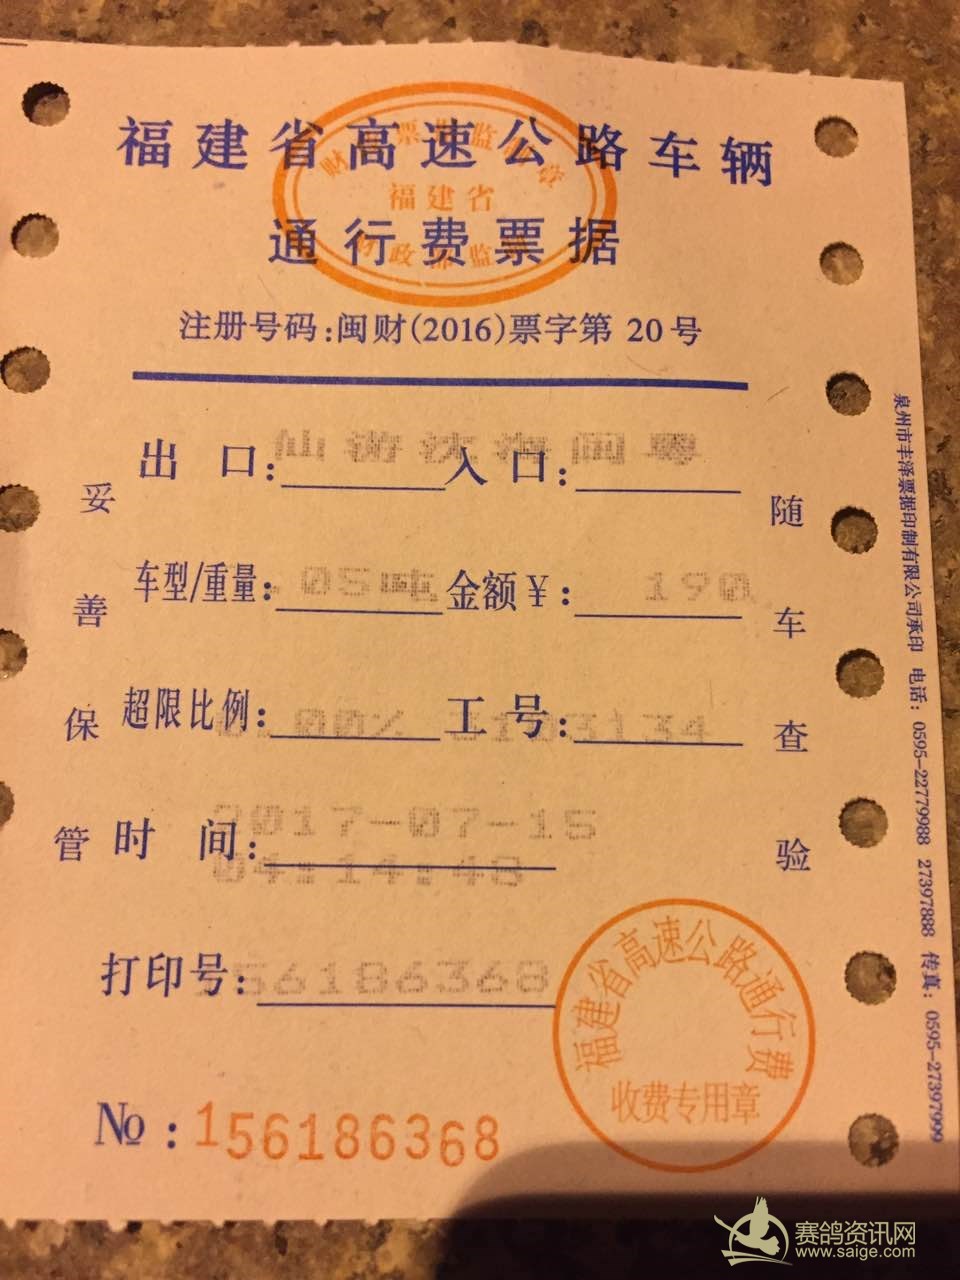 福建省高速公路车辆
通行费票据
福建省
注册号码:闽财(2016)票字第 20号
出口: 仙游沈海闽粤 入口:
车型/重量: 05吨 金额¥: 190
超限比例: .00% 工号: 3134
时间: 2017-07-15
04:14:48
打印号: 156186368
№:156186368
妥善保管
随车查验
福建省高速公路通行费
收费专用章
泉州市丰泽票据印制有限公司承印 电话:0595-22779988 27397888 传真:0595-27397999
赛鸽资讯网
www.saige.com